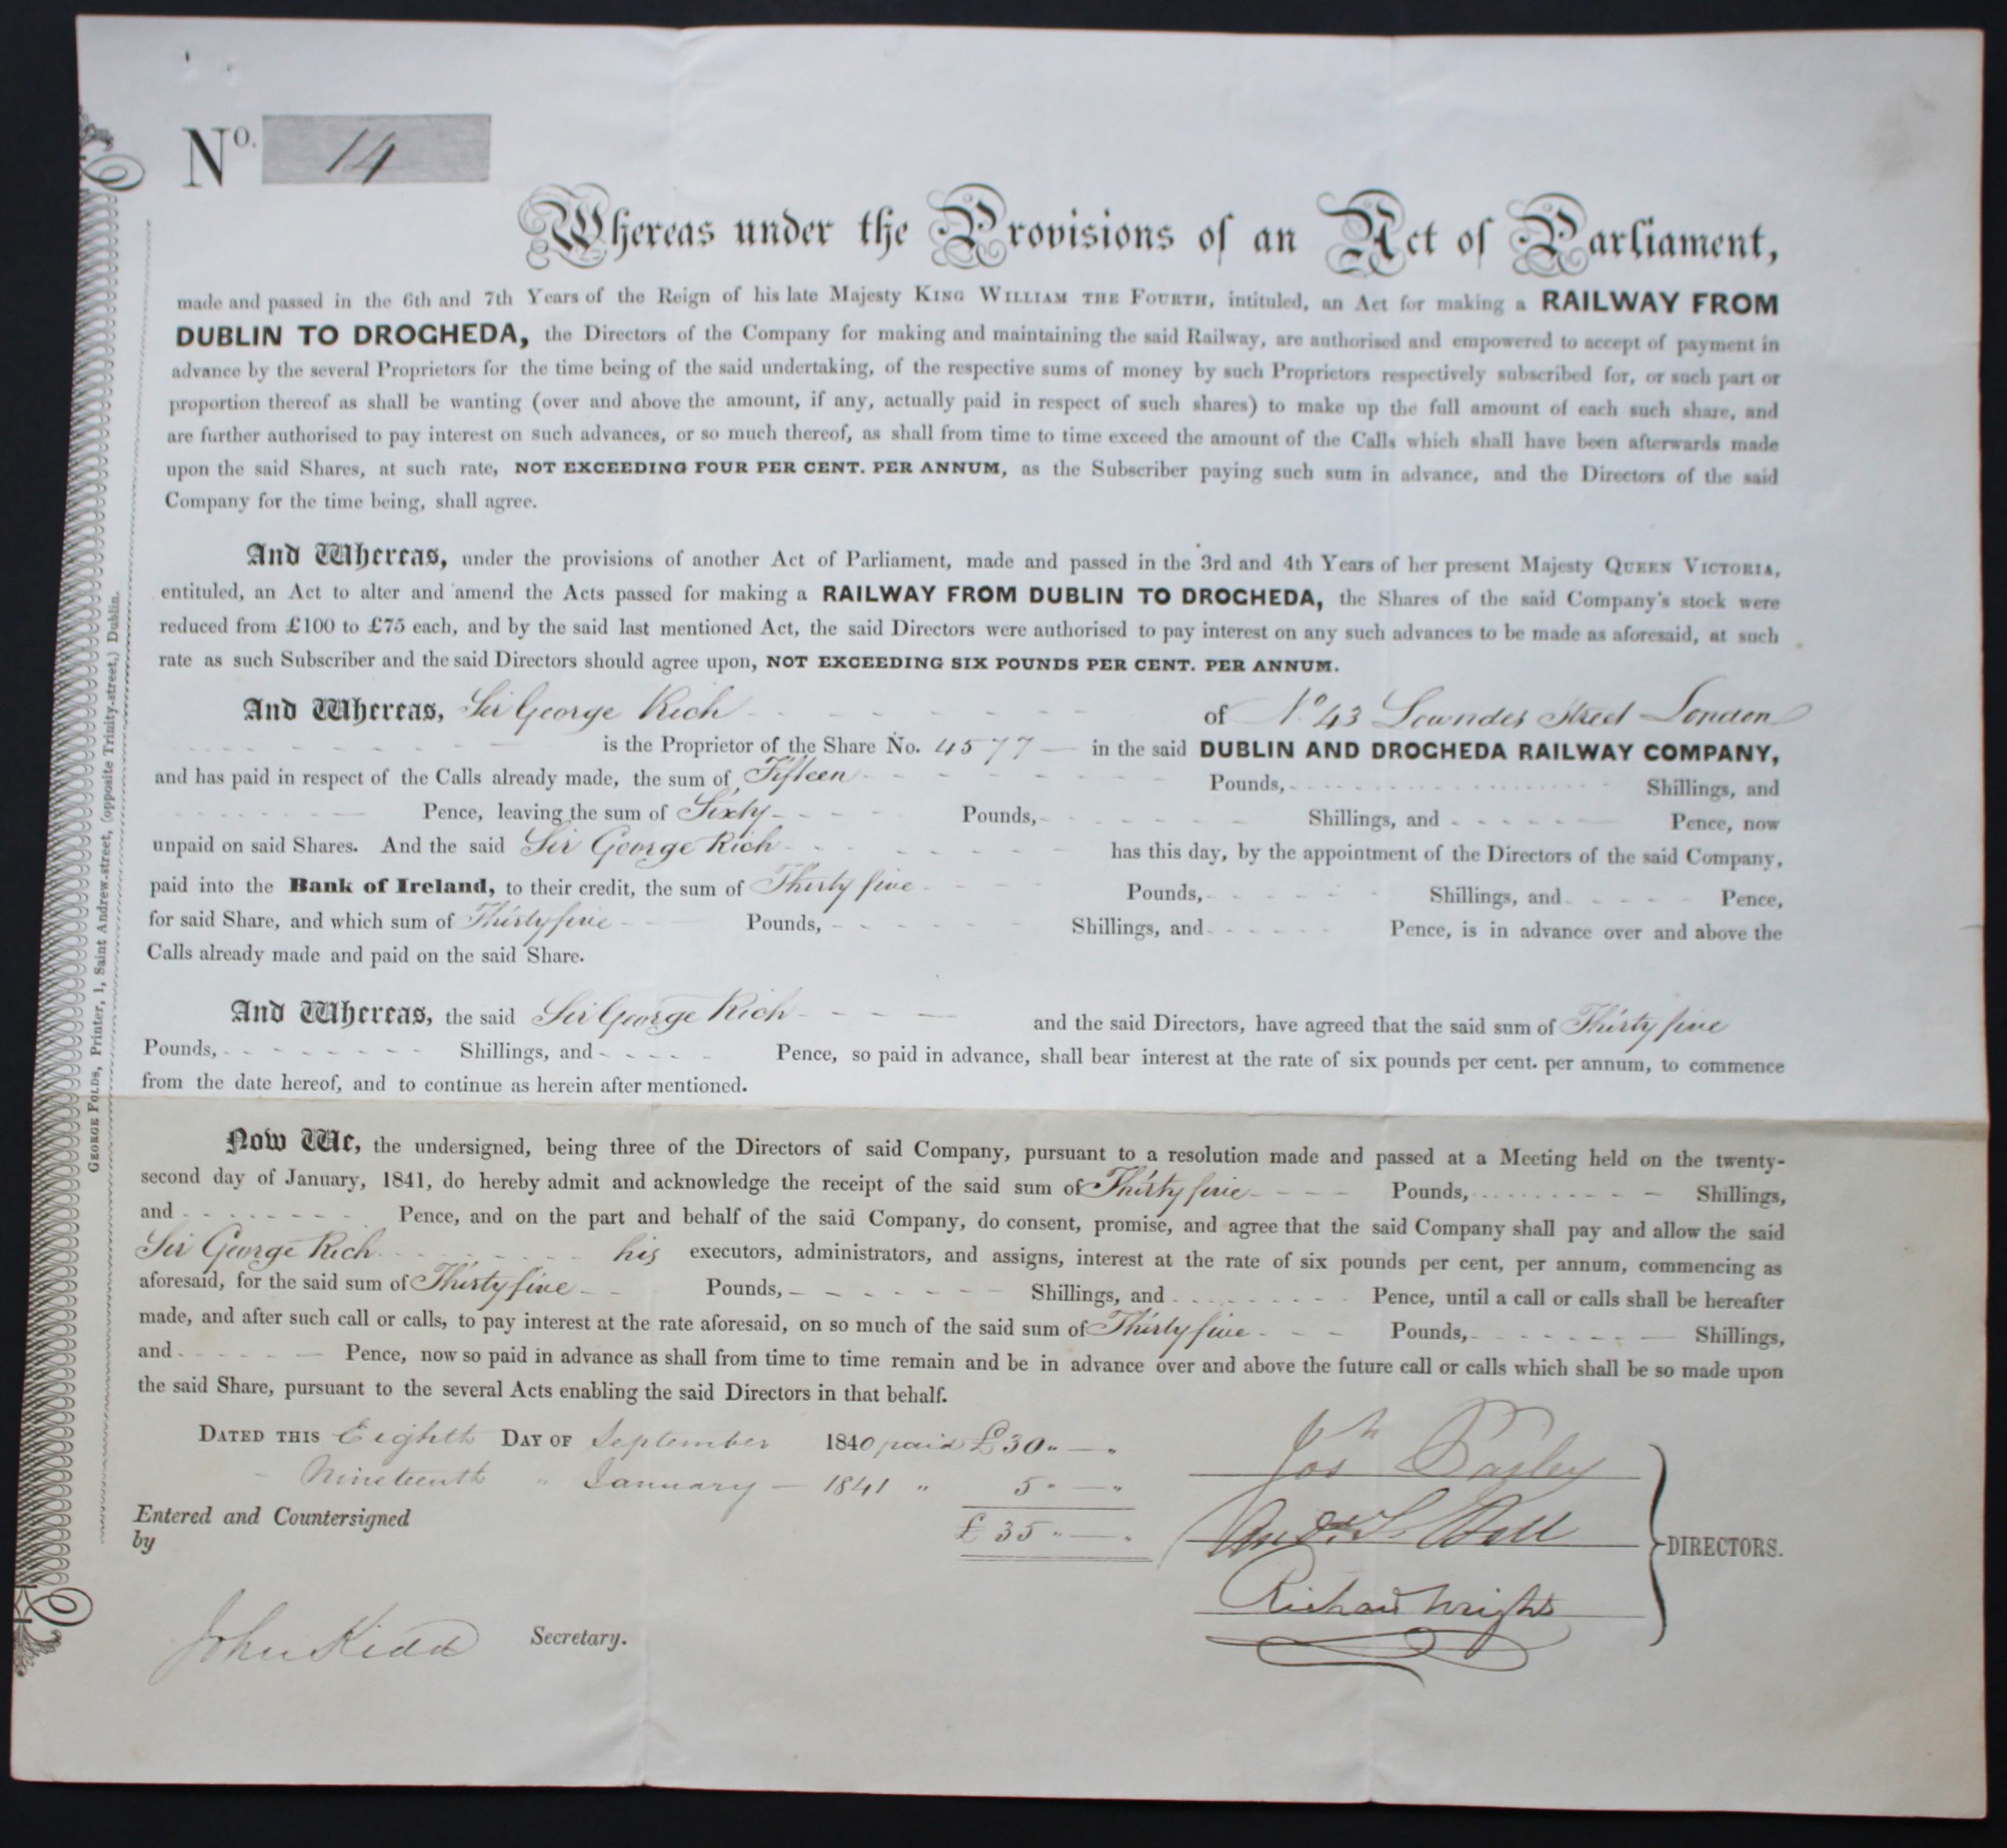 No. 14
Whereas under the Provisions of an Act of Parliament,
made and passed in the 6th and 7th Years of the Reign of his late Majesty KING WILLIAM THE FOURTH, intituled, an Act for making a RAILWAY FROM
DUBLIN TO DROGHEDA, the Directors of the Company for making and maintaining the said Railway, are authorised and empowered to accept of payment in
advance by the several Proprietors for the time being of the said undertaking, of the respective sums of money by such Proprietors respectively subscribed for, or such part or
proportion thereof as shall be wanting (over and above the amount, if any, actually paid in respect of such shares) to make up the full amount of each such share, and
are further authorised to pay interest on such advances, or so much thereof, as shall from time to time exceed the amount of the Calls which shall have been afterwards made
upon the said Shares, at such rate, NOT EXCEEDING FOUR PER CENT. PER ANNUM, as the Subscriber paying such sum in advance, and the Directors of the said
Company for the time being, shall agree.
And Whereas, under the provisions of another Act of Parliament, made and passed in the 3rd and 4th Years of her present Majesty QUEEN VICTORIA,
entituled, an Act to alter and amend the Acts passed for making a RAILWAY FROM DUBLIN TO DROGHEDA, the Shares of the said Company's stock were
reduced from £100 to £75 each, and by the said last mentioned Act, the said Directors were authorised to pay interest on any such advances to be made as aforesaid, at such
rate as such Subscriber and the said Directors should agree upon, NOT EXCEEDING SIX POUNDS PER CENT. PER ANNUM.
And Whereas, Sir George Rich of No 43 Lowndes Street London
is the Proprietor of the Share No. 4577 in the said DUBLIN AND DROGHEDA RAILWAY COMPANY,
and has paid in respect of the Calls already made, the sum of Fifteen Pounds, Shillings, and
Pence, leaving the sum of Sixty Pounds, Shillings, and Pence, now
unpaid on said Shares. And the said Sir George Rich has this day, by the appointment of the Directors of the said Company,
paid into the Bank of Ireland, to their credit, the sum of Thirty five Pounds, Shillings, and Pence,
for said Share, and which sum of Thirty five Pounds, Shillings, and Pence, is in advance over and above the
Calls already made and paid on the said Share.
And Whereas, the said Sir George Rich and the said Directors, have agreed that the said sum of Thirty five
Pounds, Shillings, and Pence, so paid in advance, shall bear interest at the rate of six pounds per cent. per annum, to commence
from the date hereof, and to continue as herein after mentioned.
Now We, the undersigned, being three of the Directors of said Company, pursuant to a resolution made and passed at a Meeting held on the twenty-
second day of January, 1841, do hereby admit and acknowledge the receipt of the said sum of Thirty five Pounds, Shillings,
and Pence, and on the part and behalf of the said Company, do consent, promise, and agree that the said Company shall pay and allow the said
Sir George Rich his executors, administrators, and assigns, interest at the rate of six pounds per cent, per annum, commencing as
aforesaid, for the said sum of Thirty five Pounds, Shillings, and Pence, until a call or calls shall be hereafter
made, and after such call or calls, to pay interest at the rate aforesaid, on so much of the said sum of Thirty five Pounds, Shillings,
and Pence, now so paid in advance as shall from time to time remain and be in advance over and above the future call or calls which shall be so made upon
the said Share, pursuant to the several Acts enabling the said Directors in that behalf.
DATED THIS Eighth DAY OF September 1840 paid £30 " — "
Nineteenth " January — 1841 " 5 " — "
£ 35 " — "
Entered and Countersigned
by
John Kidd Secretary.
Jos
Bell
Richard Wright
DIRECTORS.
GEORGE FOLDS, Printer, 1, Saint Andrew-street, (opposite Trinity-street,) Dublin.